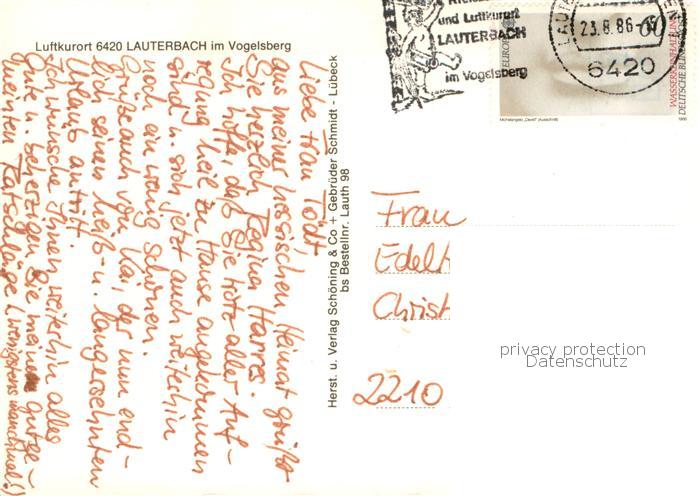 Luftkurort 6420 LAUTERBACH im Vogelsberg
Liebe Frau Tödt
aus meiner hessischen Heimat grüßt
Sie herzlich Regina Harres.
Ich hoffe, daß Sie trotz aller Auf-
regung heile zu Hause angekommen
sind u. sich jetzt auch weiterhin
noch ein wenig schonen.
Grüße auch von Kai, der nun end-
lich seinen heiß- u. langersehnten
Urlaub antritt.
Ich wünsche Ihnen weiterhin alles
Gute u. beherzigen Sie meine gutge-
meinten Ratschläge (wenigstens manchmal!)
Herst. u. Verlag Schöning & Co + Gebrüder Schmidt - Lübeck
bs Bestellnr. Lauth 98
und Luftkurort
LAUTERBACH
im Vogelsberg
LAUTE
23.8.86-
6420
EUROPA
60
WASSERREINHALTUNG
DEUTSCHE BUNDESPOST
Michelangelo „David" (Ausschnitt)
1986
Frau
Edelt
Christ
2210
privacy protection
Datenschutz